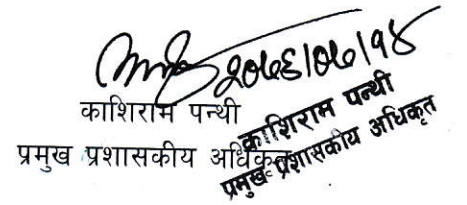 २०७६।०७।१४
काशिराम पन्थी
प्रमुख प्रशासकीय अधिकृत
काशिराम पन्थी
प्रमुख प्रशासकीय अधिकृत